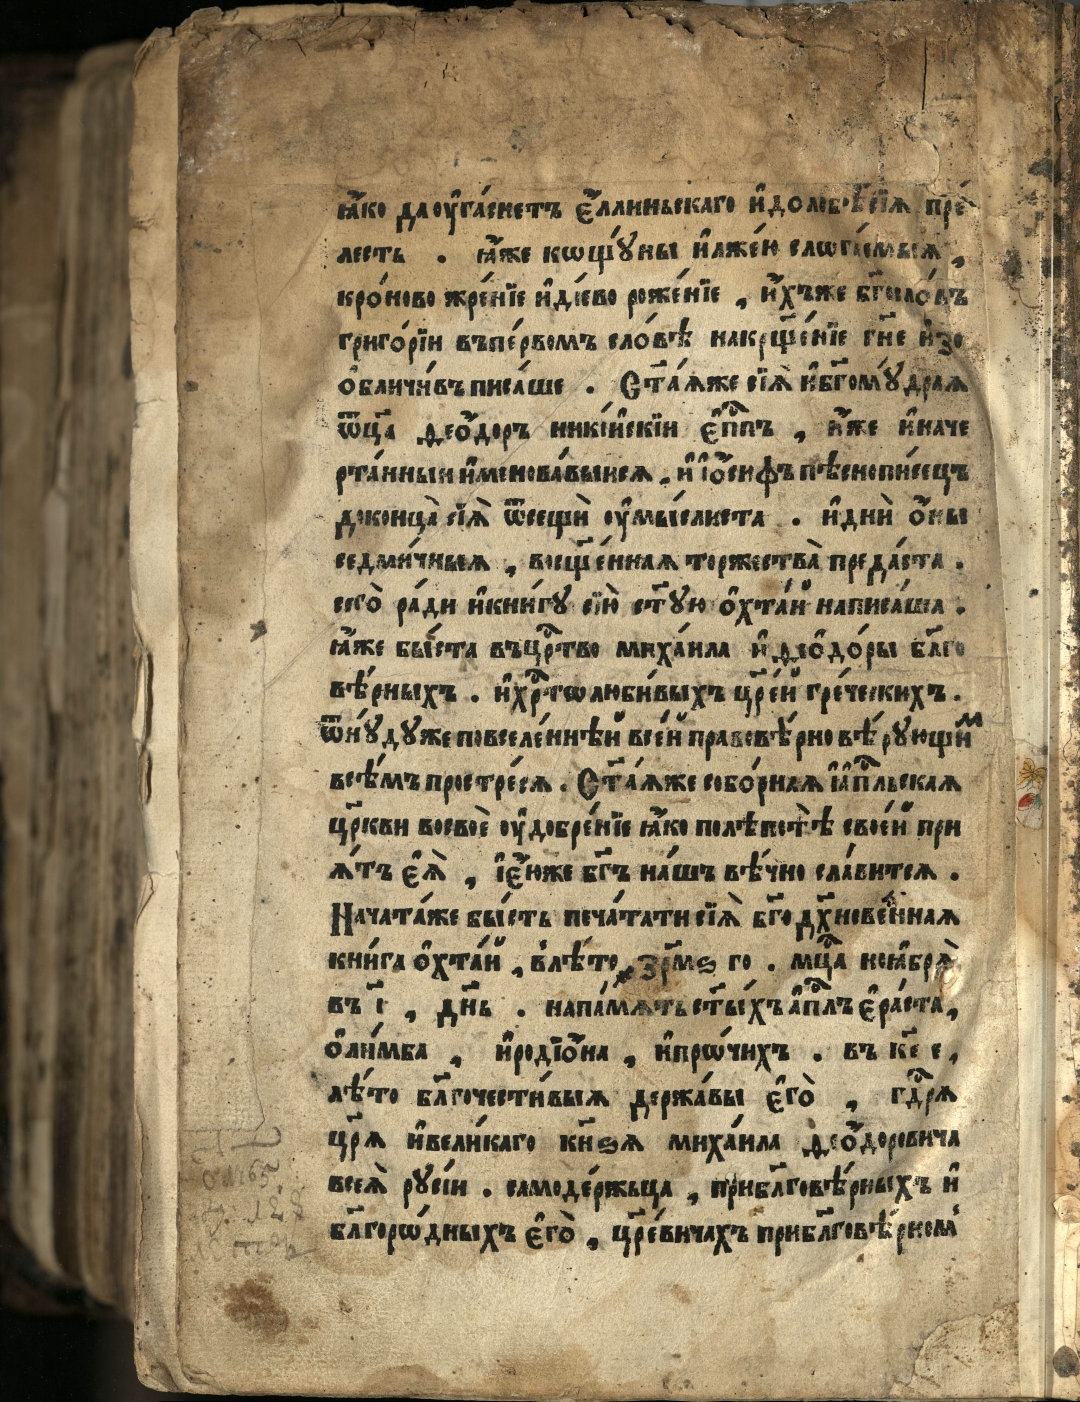 ꙗ҆́ко даоу҆га́снетъ є҆́ллиньскаго и҆долобѣ́сїѧ пре́
лесть . ꙗ҆́же кѡщꙋ́ны и҆лже́ю слага́емыѧ ,
кро́ново жре́нїе и҆ді́ево роже́нїе , и҆́хъже бг҃осло́въ
григо́рїи въпе́рвомъ сло́вѣ накрщ҃е́нїе гн҃е и҆зо
ѻ҆бличи́въ писа́ше . Ст҃а́ѧже сїѧ̀ и҆бг҃омꙋ́драѧ
ѿц҃а ѳео҆́доръ нике́искїи є҆пⷭ҇пъ , и҆́же и҆наче
рта́нныи и҆менова́выисѧ , и҆ і҆о҆́сифъ пѣснопи́сецъ
доконца̀ сїѧ̀ ѿсещѝ оу҆мы́слиста . и҆днѝ ѻ҆́ны
седми́чныѧ , восщ҃е́ннаѧ торжества̀ преда́ста .
сего̀ ра́ди и҆кни́гꙋ сїю̀ ст҃ꙋю ѻ҆хта́й написа́ша .
ꙗ҆́же бы́ста въцрⷭ҇тво миха́ила и҆ ѳео҆до́ры бл҃го
вѣ́рныхъ . и҆хрⷭ҇толюби́выхъ цр҃е́й гре́ческихъ .
ѿню́дꙋже повселе́ннѣй все́й правовѣ́рно вѣ́рꙋющиⷨ
всѣ́мъ простре́сѧ . Ст҃а́ѧже собо́рнаѧ і҆а҆пⷭ҇льскаѧ
цр҃кви восвоѐ оу҆добре́нїе ꙗ҆́ко полѣпотѣ̀ свое́й при
ѧ́тъ є҆ѧ̀ , і҆є҆́юже бг҃ъ на́шъ вѣ́чно сла́витсѧ .
Начата́же бы́сть печа́тати сїѧ̀ бг҃одх҃нове́ннаѧ
кни́га ѻ҆хта́й , влѣ́то ҂зр҃мѕ го . мцⷭ҇а ноѧ҆брѧ̀
въ і҃ , дн҃ь . напа́мѧть ст҃ы́хъ а҆пⷭ҇лъ є҆ра́ста ,
ѻ҆ли́мба , и҆родїо҆́на , и҆прѡ́чихъ . въ к҃е е ,
лѣ́то бл҃гочести́выѧ держа́вы є҆го̀ , гдⷭ҇рѧ
цр҃ѧ и҆вели́каго кн҃ѕѧ миха́ила ѳео҆́доровича
всеѧ̀ рꙋсі́и . самоде́ржьца , прибл҃говѣ́рныхъ и҆
бл҃горѡ́дныхъ є҆го̀ , цр҃е́вичахъ прибл҃говѣ́рном